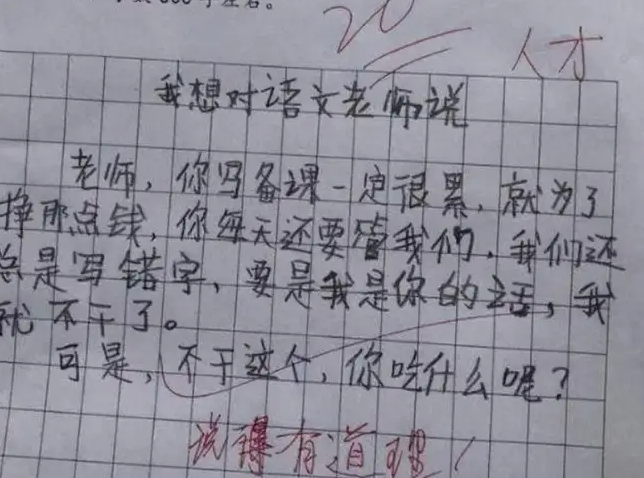 20 人才
我想对语文老师说
老师，你写备课一定很累，就为了
挣那点钱，你每天还要管我们，我们还
总是写错字，要是我是你的话，我
就不干了。
可是，不干这个，你吃什么呢？
说得有道理！